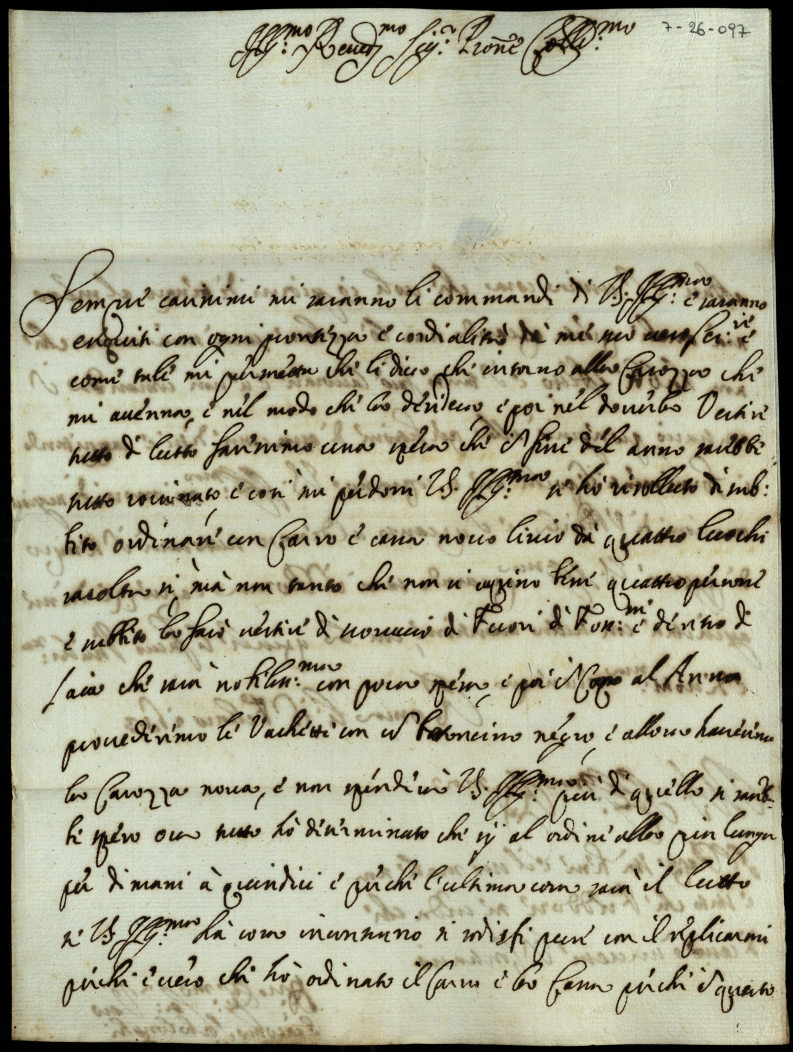 7-26-097
Ill:mo Rever:mo Sig:r Pròne Coll:mo
Sempre carissimi mi saranno li commandi di VS. Ill:ma e saranno
eseguiti con ogni prontezza e cordialità da me suo vero Ser:re e
come tale mi permetta che li dica che intorno alla Carozza che
mi accenna, e nel modo che la desidera, e poi nel doverla Vestire
tutto di lutto faressimo una spesa che il fine del anno sarebbe
tutto rovinato e così mi perdoni VS. Ill:ma se hò risolluto di sub:
bito ordinare un Carro e cassa novo liscio da quattro luochi
racolta si, mà non tanto che non vi capino bene quattro persone
e subbito la farò vestire di coruccio di Fuori di Fon:me e dentro di
saia che sarà nobiliss:ma con poca spesa e poi il Capo al Anno
provederemo le Vachette con il broncino negro, e allora haveremo
la Carozza nova, e non spenderà VS. Ill:ma più di quello si sareb-
be speso ora tutto hò determinato che sij al ordine alla più lunga
per dimani à quindici e perche l'ultima cosa sarà il lutto
se VS. Ill:ma hà cosa incontrario si sodisfi pure con il replicarmi
perche è vero che hò ordinato il Carro e la Cassa perche il questo